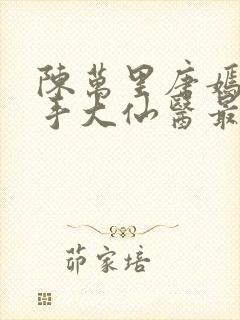 陳萬里唐嫣
手大仙醫最
茆家培